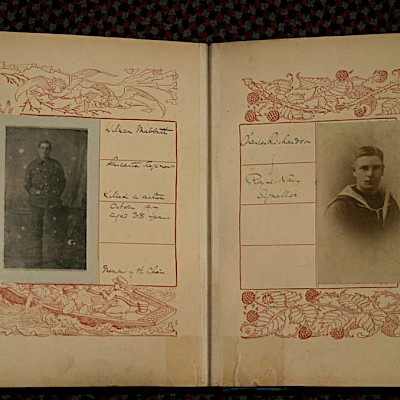 Wilson Mabbutt
Leicester Regiment
Killed in action
October 1917
aged 38 years
Member of the Choir
Charles Richardson
Royal Navy
Signaller